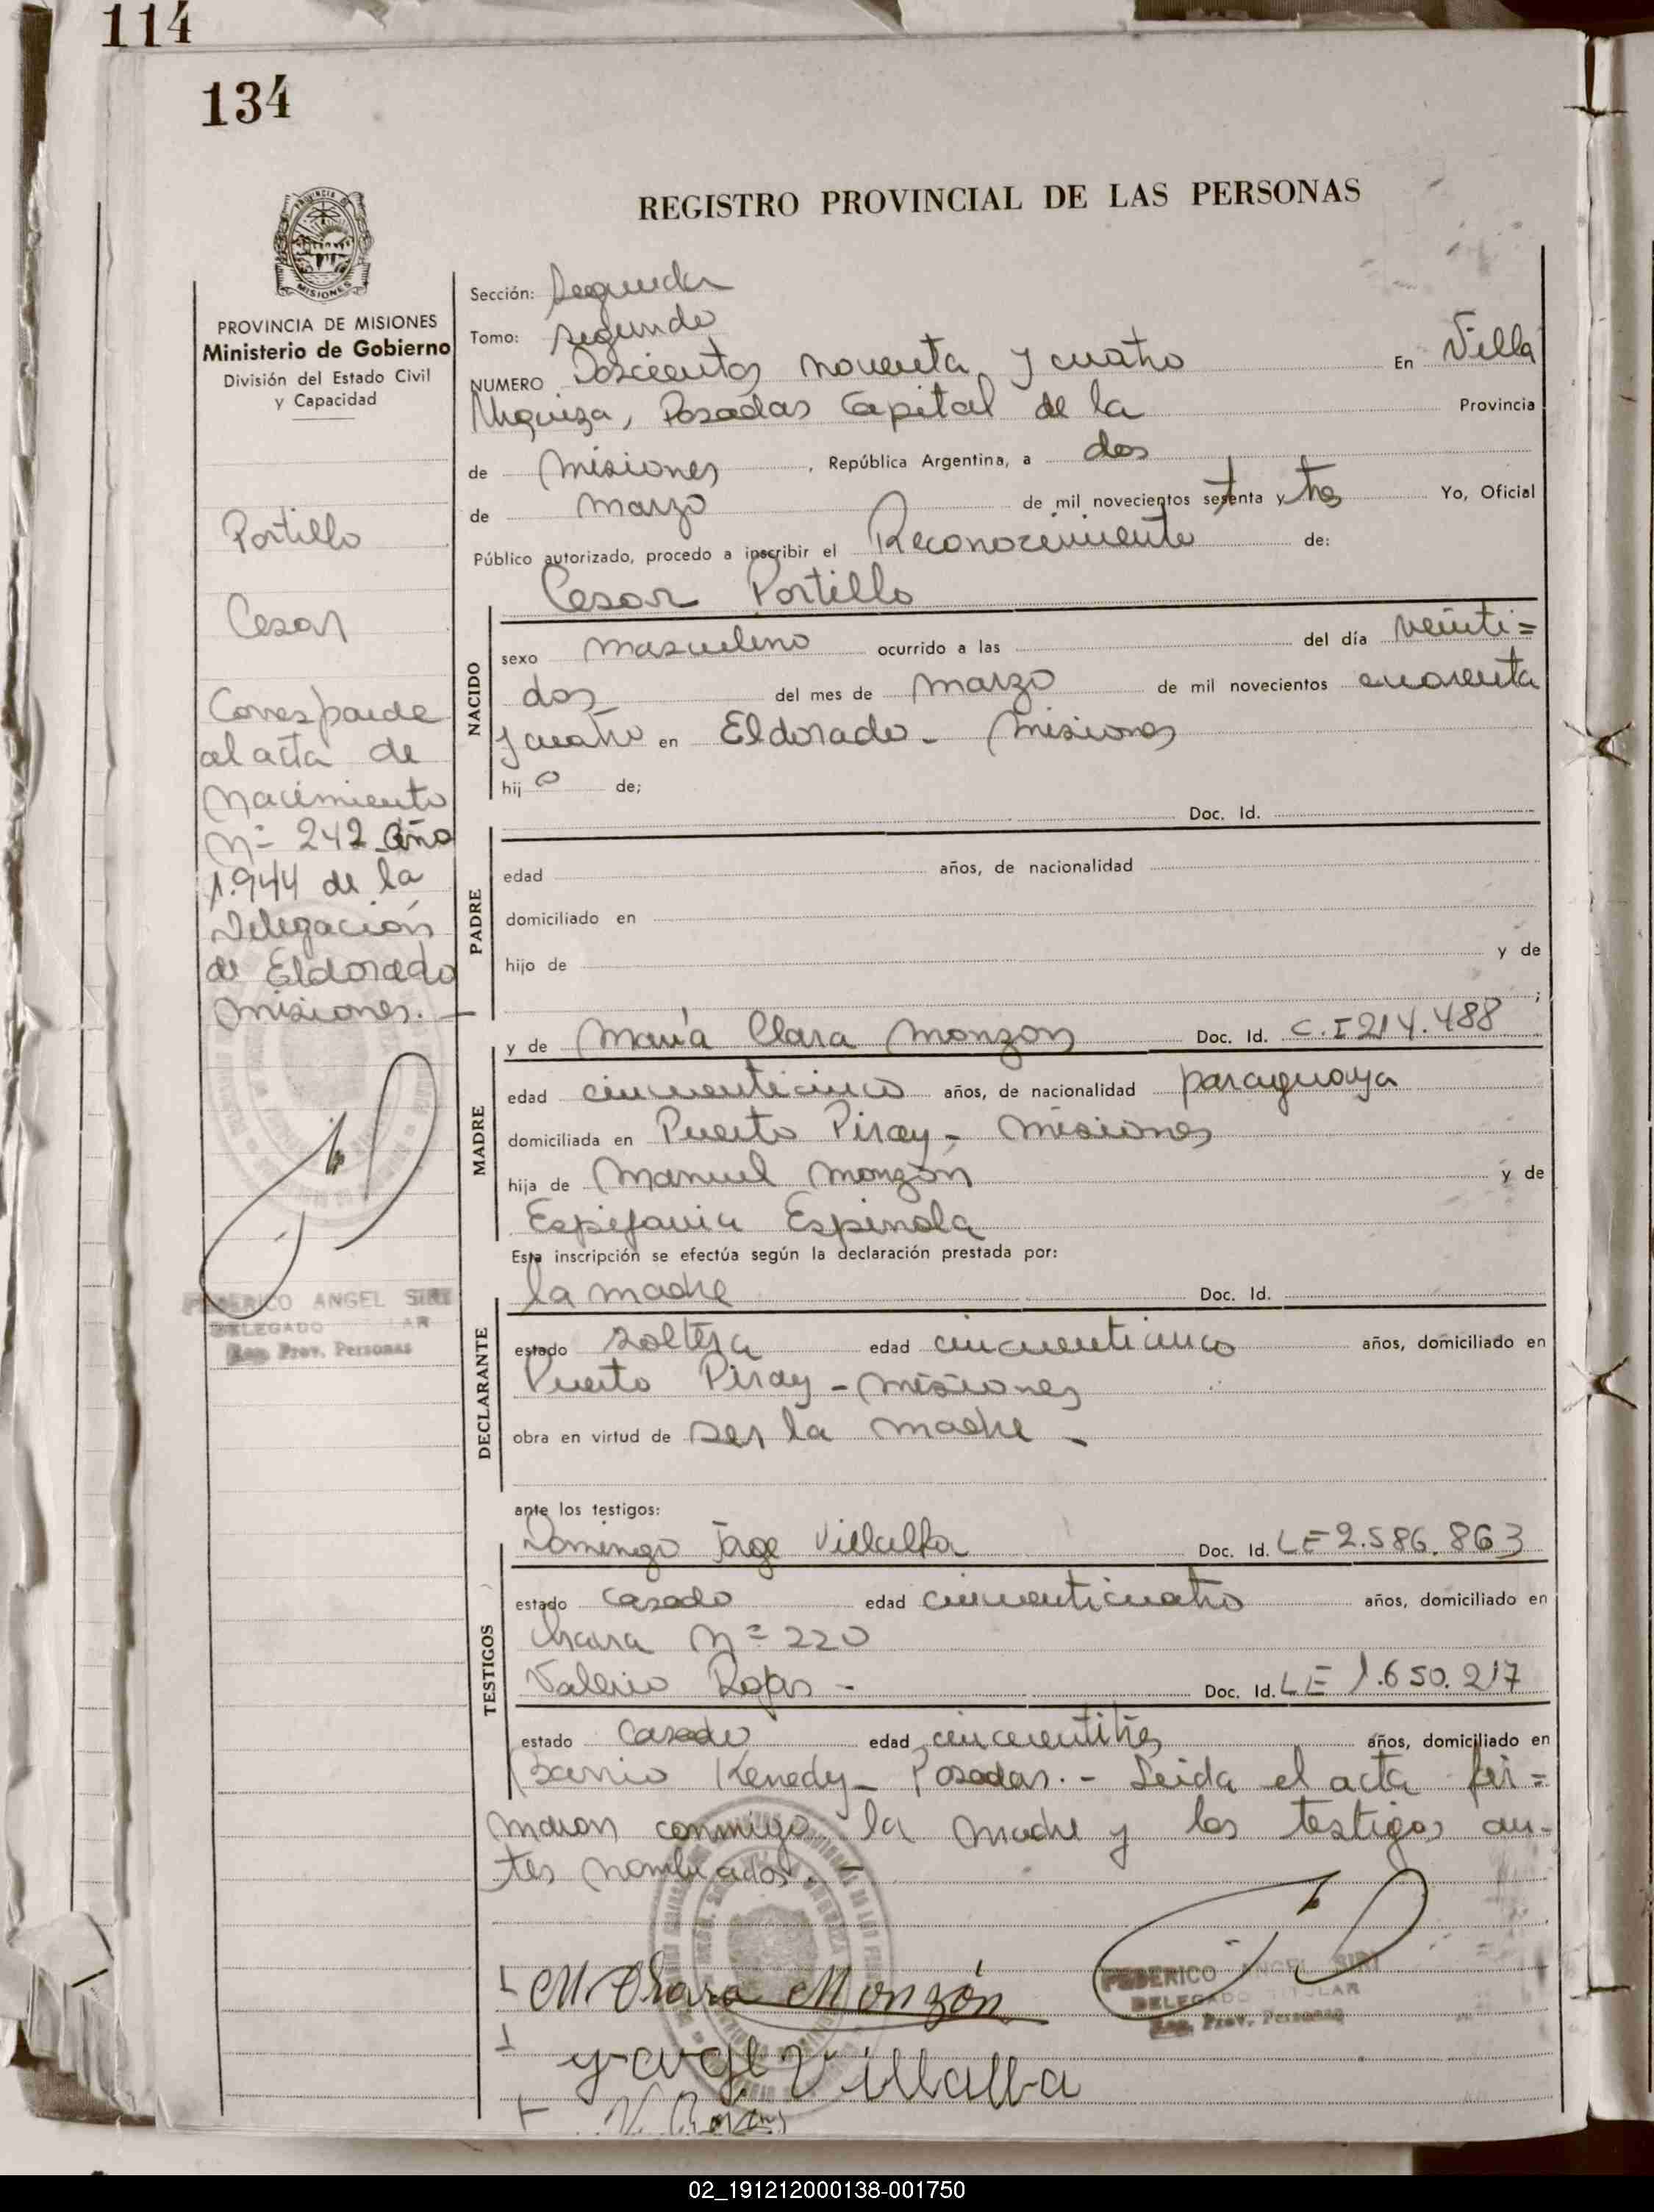 114
134
REGISTRO PROVINCIAL DE LAS PERSONAS
MISIONES
PROVINCIA DE MISIONES
Ministerio de Gobierno
División del Estado Civil
y Capacidad
Portillo
Cesar
Corresponde
al acta de
Nacimiento
Nº 242 año
1.944 de la
Delegación
de Eldorado
Misiones.-
FEDERICO ANGEL SIRI
DELEGADO
Reg. Prov. Personas
Sección: Segunda
Tomo: segundo
NUMERO Doscientos noventa y cuatro En Villa
Urquiza, Posadas Capital de la Provincia
de Misiones, República Argentina, a dos
de marzo de mil novecientos setenta y tres Yo, Oficial
Público autorizado, procedo a inscribir el Reconocimiento de:
Cesar Portillo
NACIDO
sexo masculino ocurrido a las del día veinti=
dos del mes de Marzo de mil novecientos cuarenta
y cuatro en Eldorado - Misiones
hijo de;
Doc. Id.
PADRE
edad años, de nacionalidad
domiciliado en
hijo de y de
;
y de María Clara Monzon Doc. Id. C.I 214.488
MADRE
edad cincuenticinco años, de nacionalidad paraguaya
domiciliada en Puerto Piray - Misiones
hija de Manuel Monzón y de
Espifania Espinola
Esta inscripción se efectúa según la declaración prestada por:
la madre Doc. Id.
DECLARANTE
estado soltera edad cincuenticinco años, domiciliado en
Puerto Piray - Misiones
obra en virtud de ser la madre -
ante los testigos:
Domingo Jorge Villalba Doc. Id. LE 2.586.863
TESTIGOS
estado casado edad cincuenticuatro años, domiciliado en
Nº 220
Valerio Rojas - Doc. Id. LE 1.650.217
estado Casado edad cincuentitres años, domiciliado en
Barrio Kenedy - Posadas.- Leida el acta fir=
maron conmigo, la madre y los testigos an-
tes nombrados.-
M Clara Monzón
FEDERICO ANGEL SIRI
DELEGADO TITULAR
Reg. Prov. Personas
Villalba
V. Rojas
02_191212000138-001750